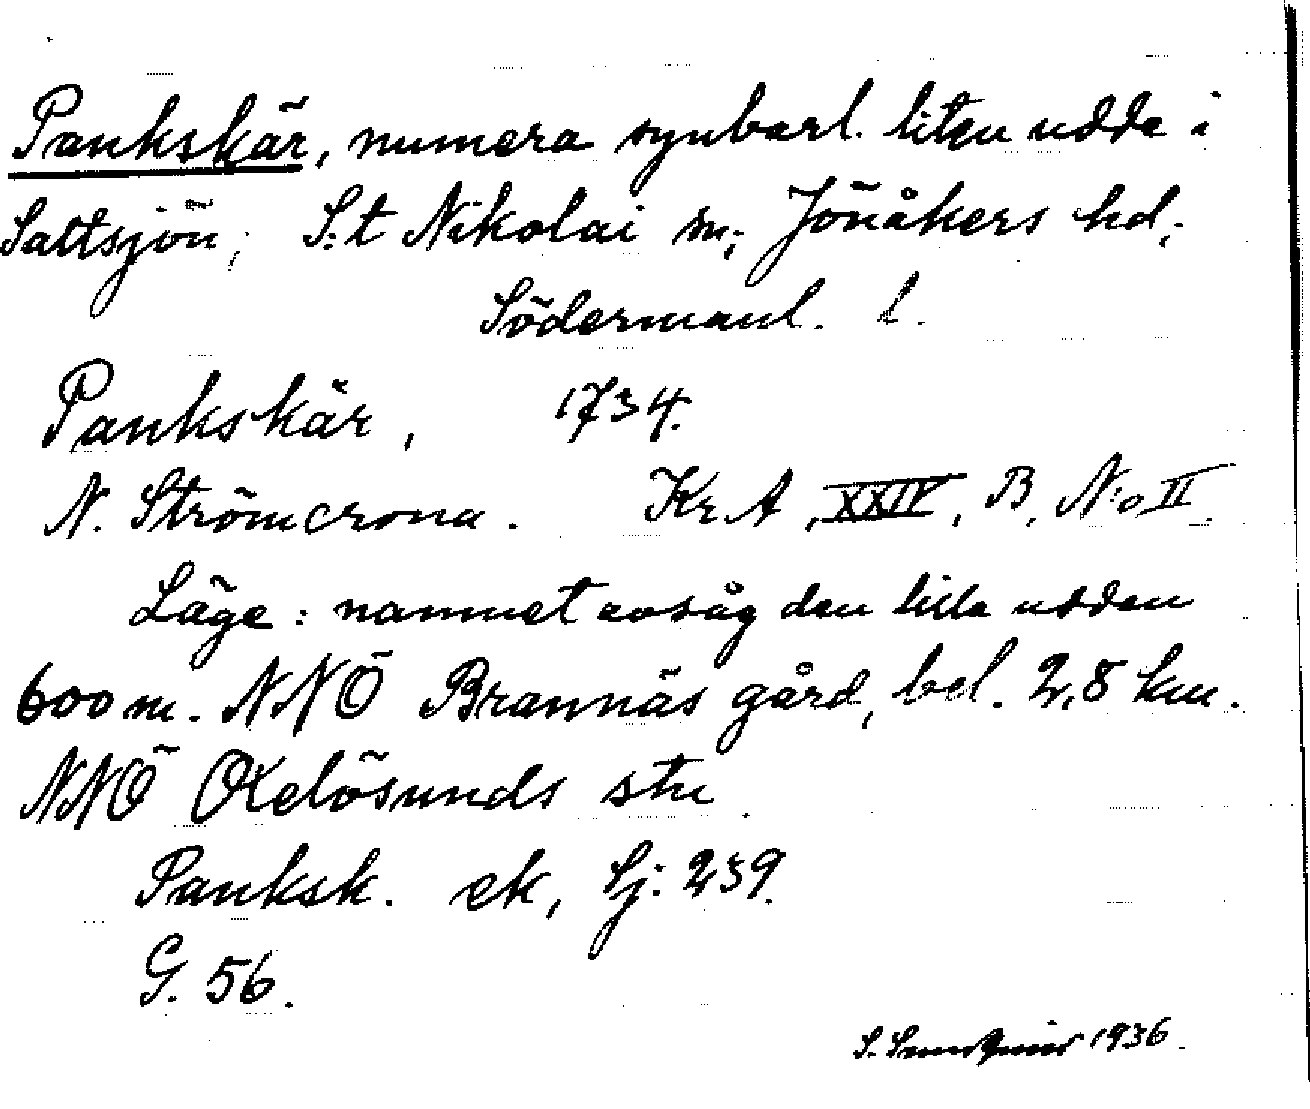 Pankskär, numera synbarl. liten udde i
Saltsjön; S:t Nikolai sn; Jönåkers hd;
Södermanl. l.
Pankskär, 1734.
N. Strömcrona. Kr. A, XXIV, B, N:o II.
Läge: namnet avsåg den lilla udden
600 m. NNÖ Brannäs gård, bel. 2,8 km.
NNÖ Oxelösunds stn.
Panksk. ek, Sj. 239.
G. 56.
S. 1936.